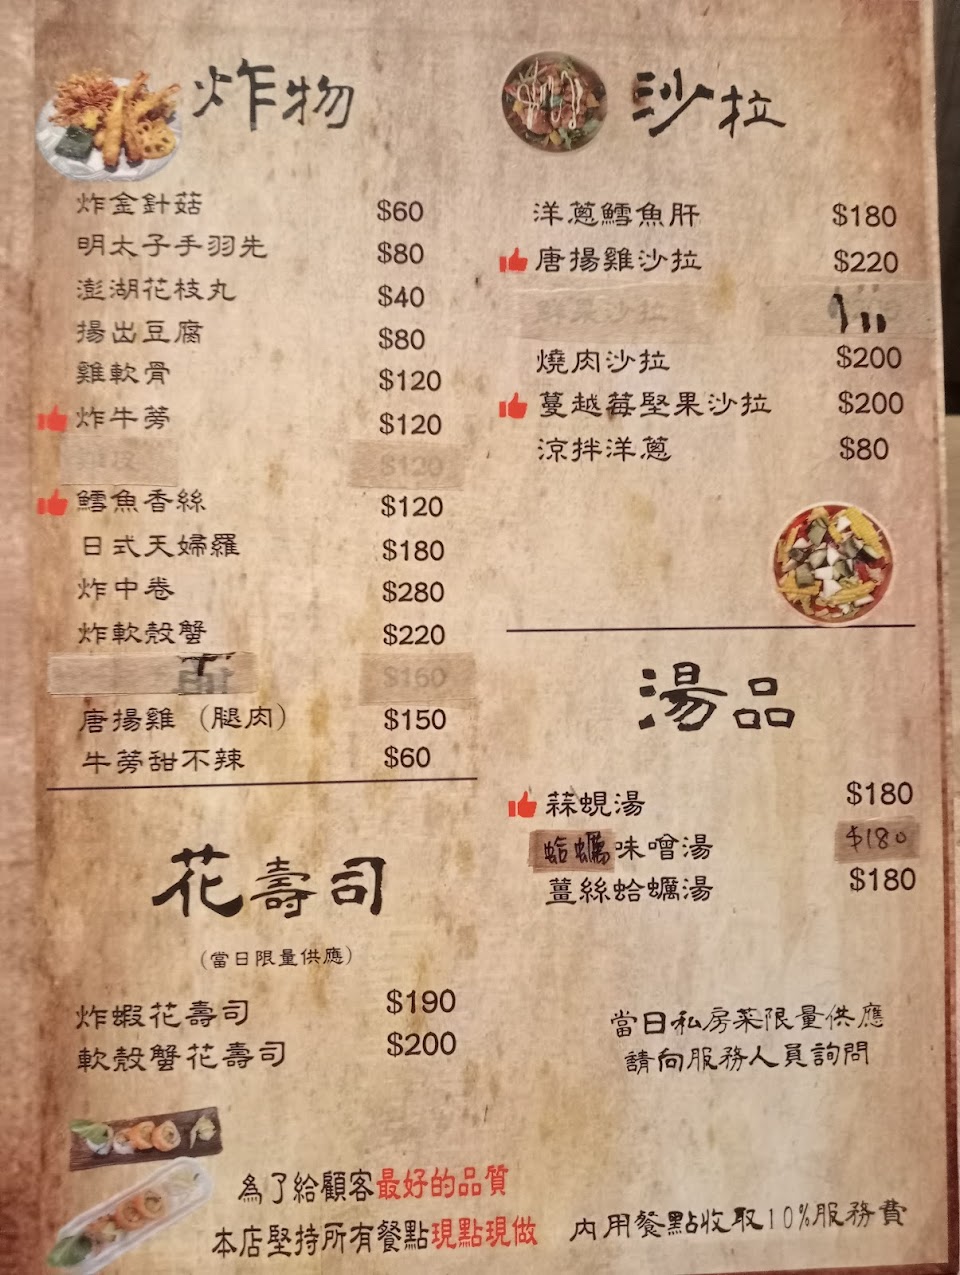 炸物
炸金針菇 $60
明太子手羽先 $80
澎湖花枝丸 $40
揚出豆腐 $80
雞軟骨 $120
炸牛蒡 $120
雞皮 $120
鱈魚香絲 $120
日式天婦羅 $180
炸中卷 $280
炸軟殼蟹 $220
$160
唐揚雞（腿肉） $150
牛蒡甜不辣 $60
花壽司
（當日限量供應）
炸蝦花壽司 $190
軟殼蟹花壽司 $200
為了給顧客最好的品質
本店堅持所有餐點現點現做
沙拉
洋蔥鱈魚肝 $180
唐揚雞沙拉 $220
沙拉
燒肉沙拉 $200
蔓越莓堅果沙拉 $200
涼拌洋蔥 $80
湯品
蒜蜆湯 $180
蛤蠣味噌湯 $180
薑絲蛤蠣湯 $180
當日私房菜限量供應
請向服務人員詢問
內用餐點收取10%服務費